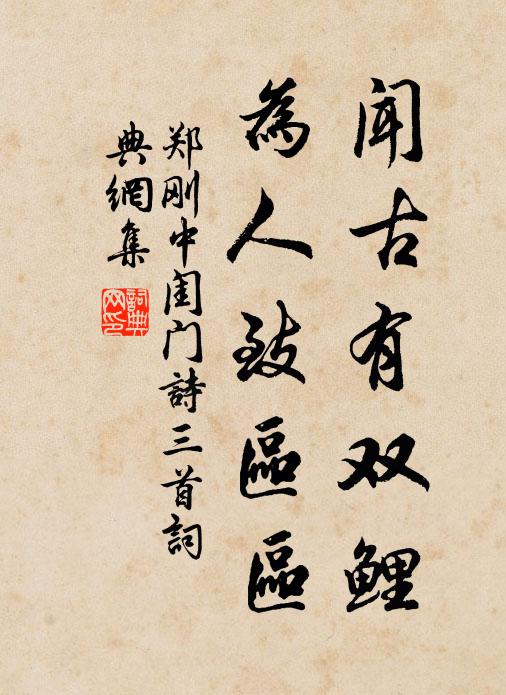 闻古有双鲤
為人致區區
郑刚中闺门詩三首詞
典網集
詞典
网印